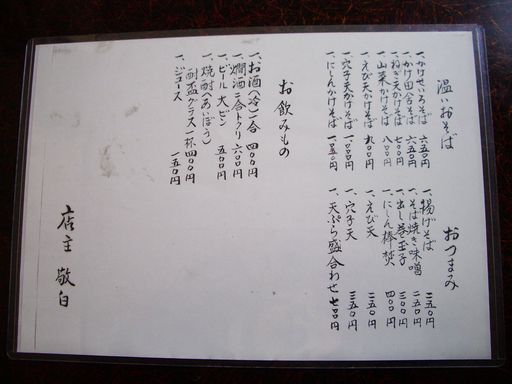 温いおそば
一、かけせいろそば 六五0円
一、かけ田舎そば 六五0円
一、ねぎ天かけそば 七00円
一、山菜かけそば 八00円
一、えび天かけそば 九00円
一、穴子天かけそば 一、000円
一、にしんかけそば 一、0五0円
おつまみ
一、揚げそば 二五0円
一、そば焼き味噌 二五0円
一、出し巻玉子 三00円
一、にしん棒焚 四00円
一、えび天 二五0円
一、穴子天 三五0円
一、天ぷら盛合わせ 七00円
お飲みもの
一、お酒(冷)一合 四00円
一、燗酒二合トクリ 六00円
一、ビール大ビン 五00円
一、焼酎(あいぼう)
一酎盃グラス一杯 四00円
一、ジュース 一五0円
店主 敬白